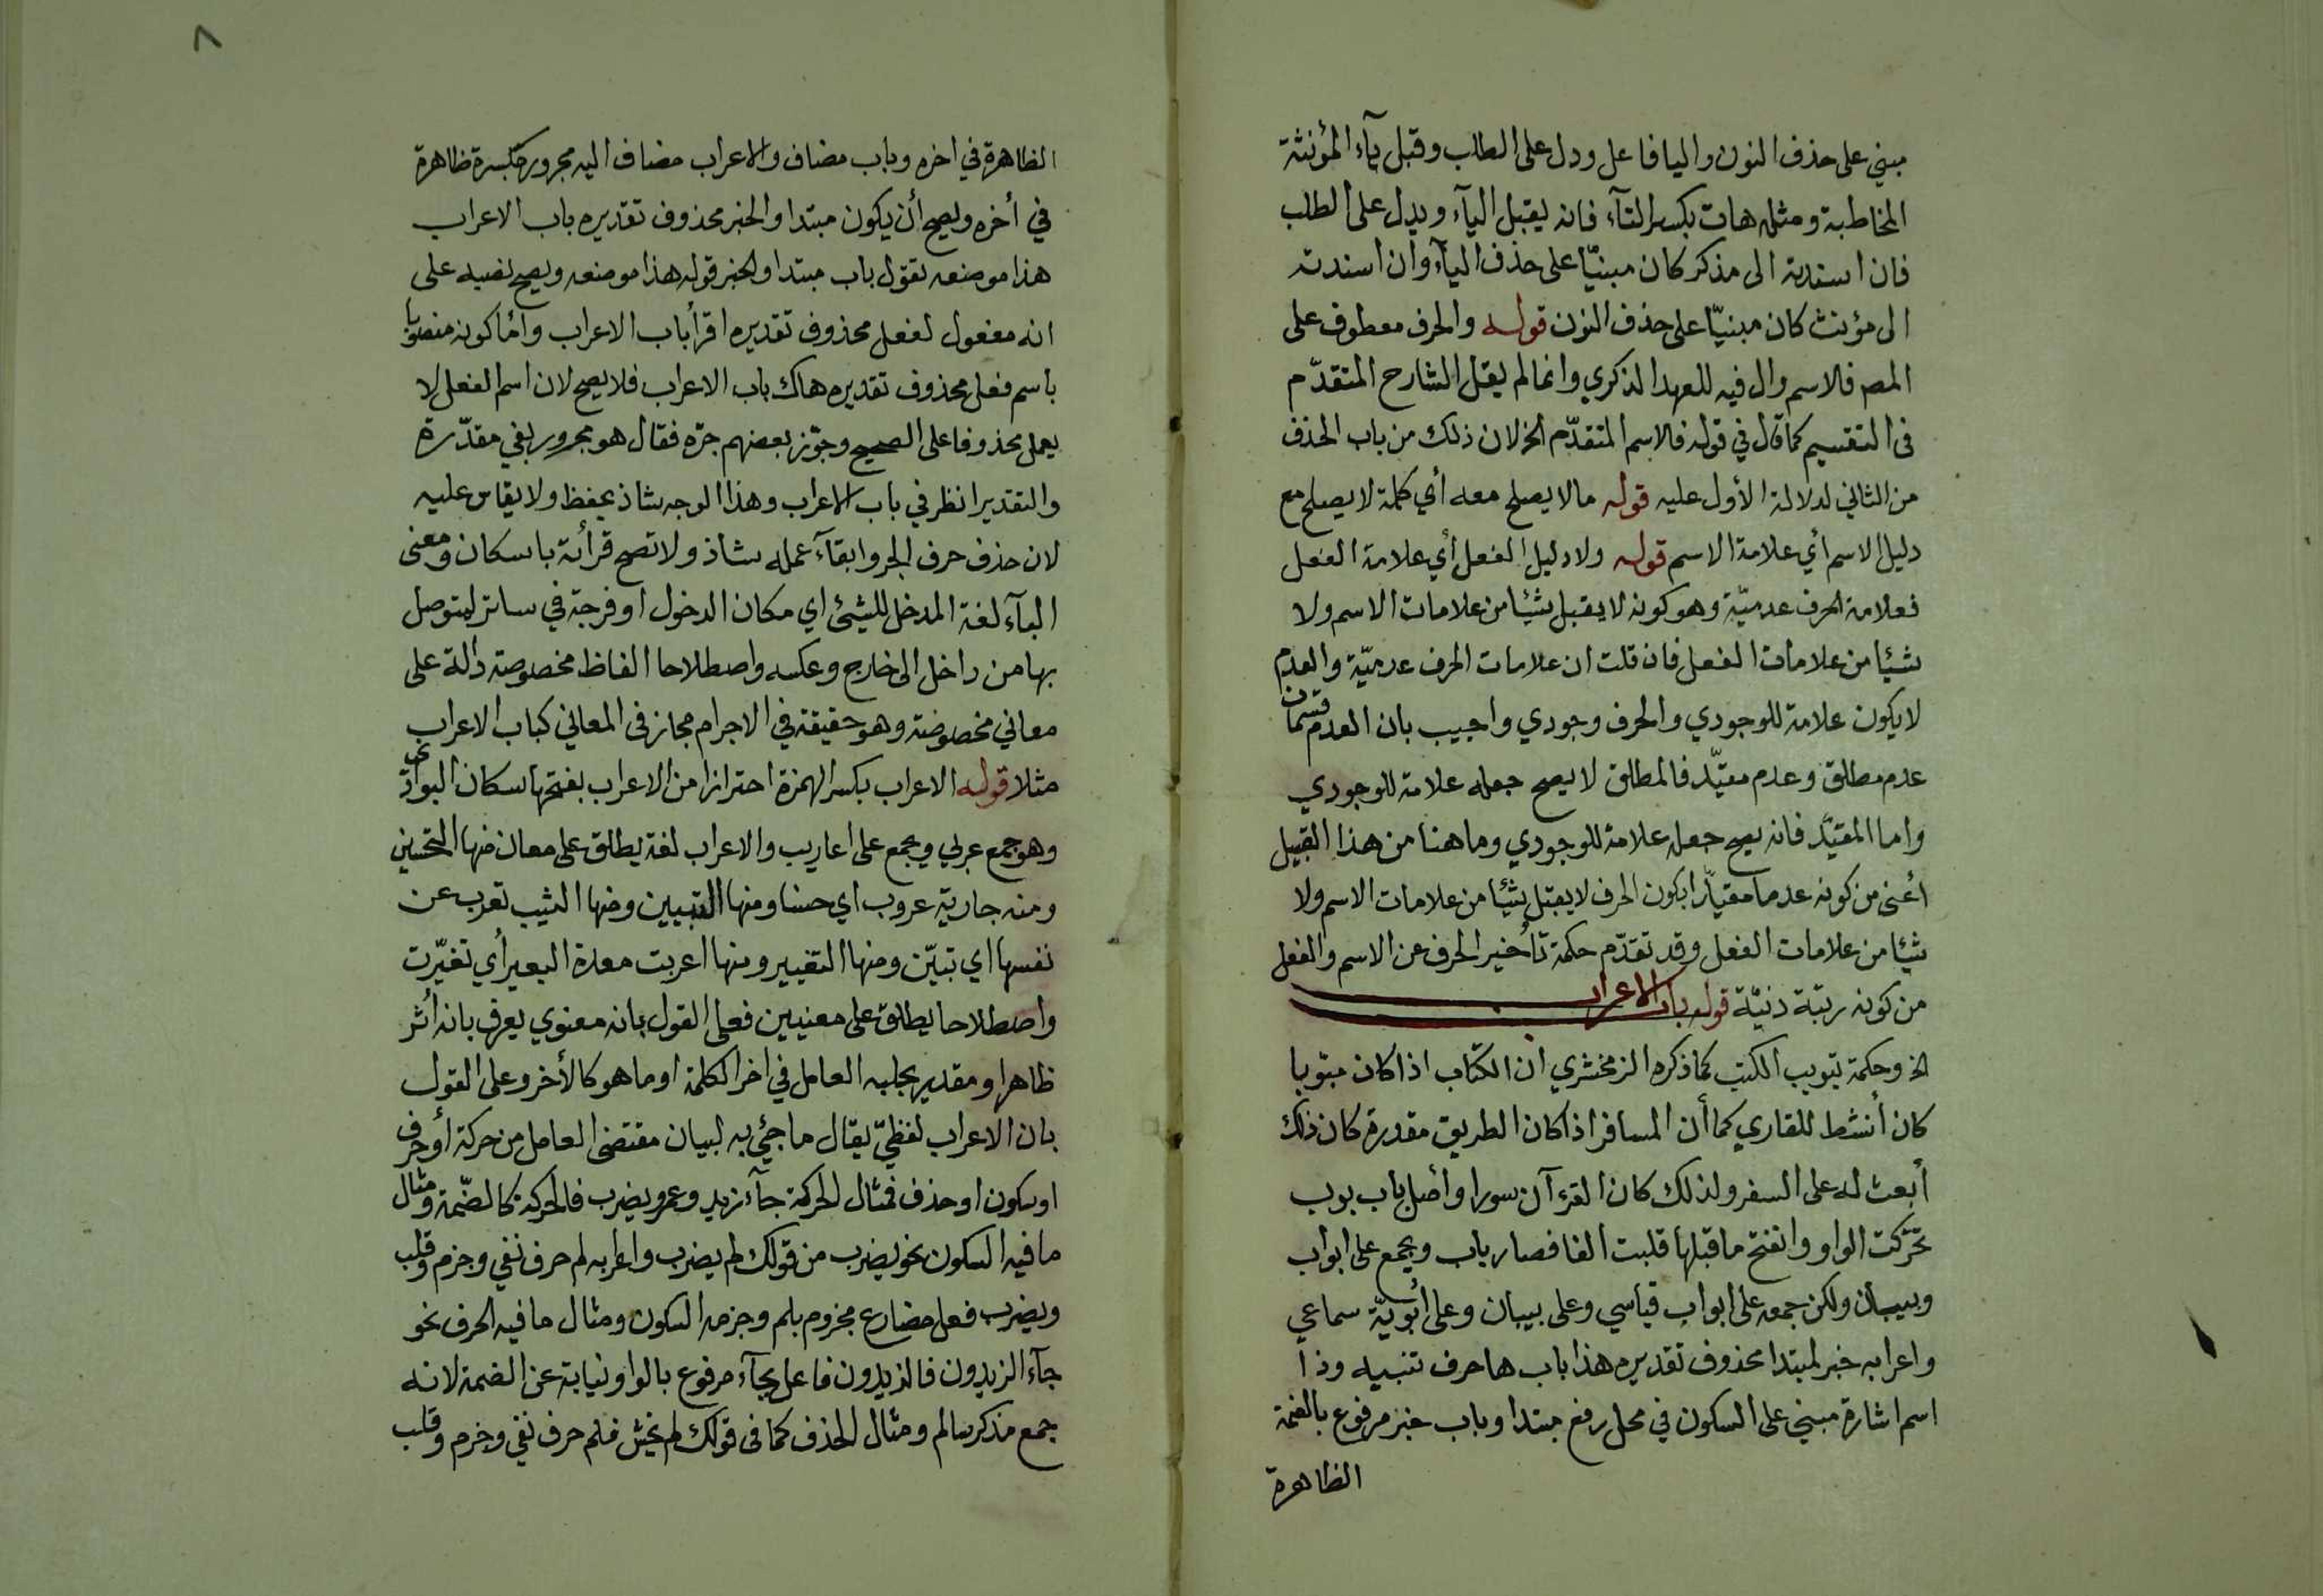 مبني على حذف النون واليا فاعل ودل على الطلب وقبل يآء المؤنثة
المخاطبة ومثله هات بكسر التآء فانه يقبل اليآء ويدل على الطلب
فان اسندته الى مذكر كان مبنيّا على حذف اليآء وان اسندته
الى مؤنث كان مبنيّا على حذف النون قوله والحرف معطوف على
المص فالاسم وال فيه للعهد الذكري وانما لم يقل الشارح المتقدّم
فى التقسيم كما قال في قوله فالاسم المتقدّم الخ لان ذلك من باب الحذف
من الثاني لدلالة الأول عليه قوله مالا يصلح معه أي كلمة لا يصلح مع
دليل الاسم أي علامة الاسم قوله ولا دليل الفعل أي علامة الفعل
فعلامة الحرف عدميّة وهو كونه لا يقبل شيئا من علامات الاسم ولا
شيئا من علامات الفعل فان قلت ان علامات الحرف عدميّة والعدم
لا يكون علامة للوجودي والحرف وجودي واجيب بان العدم قسمان
عدم مطلق وعدم مقيّد فالمطلق لا يصح جعله علامة للوجودي
واما المقيّد فانه يصح جعله علامة للوجودي وما هنا من هذا القبيل
أعنى من كونه عدما مقيّدا بكون الحرف لا يقبل شيئا من علامات الاسم ولا
شيئا من علامات الفعل وقد تقدّم حكمة تأخير الحرف عن الاسم والفعل
من كونه رتبّة دنيّة قوله باب الاعراب
الخ وحكمة تبويب الكتب كما ذكره الزمخشري ان الكتاب اذا كان مبوّبا
كان أنشط للقاري كما أن المسافر اذا كان الطريق مقدرة كان ذلك
أبعث له على السفر ولذلك كان القرءآن سورا وأصل باب بوب
تحرّكت الواو وانفتح ما قبلها قلبت الفا فصار باب ويجمع على ابواب
وبيبان ولكن جمعه على ابواب قياسي وعلى بيبان وعلى أبوبيّة سماعي
واعرابه خبر لمبتدا محذوف تقديره هذا باب ها حرف تنبيه وذا
اسم اشارة مبني على السكون في محل رفع مبتدا وباب خبر مرفوع بالضمة
الظاهرة
٨
الظاهرة في اخره وباب مضاف والاعراب مضاف اليه مجرور بكسرة ظاهرة
في أخره ويصح أن يكون مبتدا والخبر محذوف تقديره باب الاعراب
هذا موضعه تقول باب مبتدا والخبر قوله هذا موضعه ويصح نصبه على
انه مفعول لفعل محذوف تقديره اقرأ باب الاعراب وأما كونه منصوبا
باسم فعل محذوف تقديره هاك باب الاعراب فلا يصح لان اسم الفعل لا
يعمل محذوفا على الصحيح وجوّز بعضهم جرّه فقال هو مجرور بفي مقدّرة
والتقدير انظر في باب الاعراب وهذا الوجه شاذ يحفظ ولا يقاس عليه
لان حذف حرف الجر وابقآء عمله شاذ ولا تصح قرأته باسكان ومعنى
البآء لغة المدخل للشيئ اي مكان الدخول او فرجة في ساتر ليتوصل
بها من داخل الى خارج وعكسه واصطلاحا الفاظ مخصوصة دالة على
معاني مخصوصة وهو حقيقة في الاجرام مجاز فى المعاني كباب الاعراب
مثلا قوله الاعراب بكسر الهمزة احترازا من الاعراب بفتحها سكان البوادي
وهو جمع عربي ويجمع على اعاريب والاعراب لغة يطلق على معان منها التحسين
ومنه جارية عروب اي حسنا ومنها التبيين ومنها الثيب تعرب عن
نفسها اي تبيّن ومنها التغيير ومنها اعربت معدة البعير أي تغيّرت
واصطلاحا يطلق على معنيين فعلى القول بانه معنوي يعرف بانه أثر
ظاهر او مقدر يجلبه العامل في اخر الكلمة او ما هو كالأخر وعلى القول
بان الاعراب لفظيّ يقال ما جيئ به لبيان مقتضى العامل من حركة أو حرف
او سكون او حذف فمثال الحركة جآء زيد وعمرو يضرب فالحركة كالضّمة ومثال
ما فيه السكون نحو يضرب من قولك لم يضرب واعرابه لم حرف نفي وجزم وقلب
ويضرب فعل مضارع مجزوم بلم وجزمه السكون ومثال ما فيه الحرف نحو
جآء الزيدون فالزيدون فاعل بجآء مرفوع بالواو نيابة عن الضمة لانه
جمع مذكر سالم ومثال الحذف كما فى قولك لم يخش فلم حرف نفي وجزم وقلب